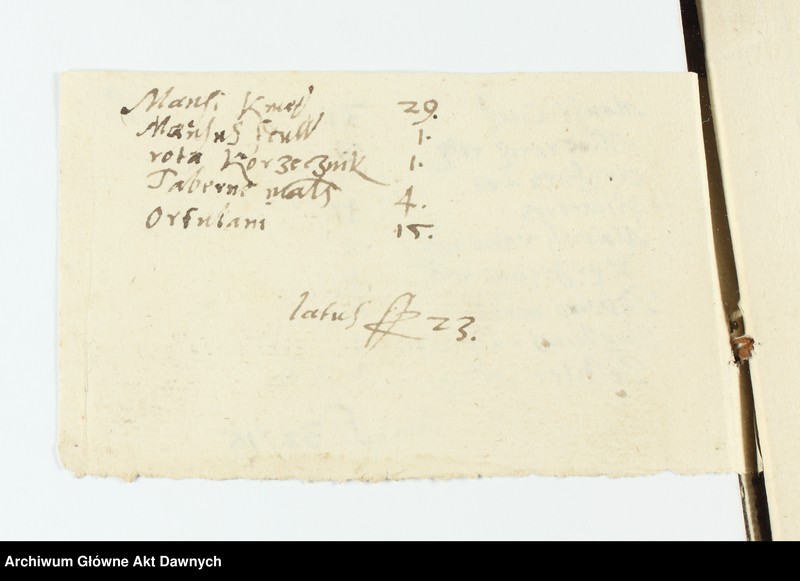 Mansi Kmet 29.
Mansus scult 1.
rota Korzecznik 1.
Taberne mals 4.
Ortulani 15.
latus 23.
Archiwum Główne Akt Dawnych